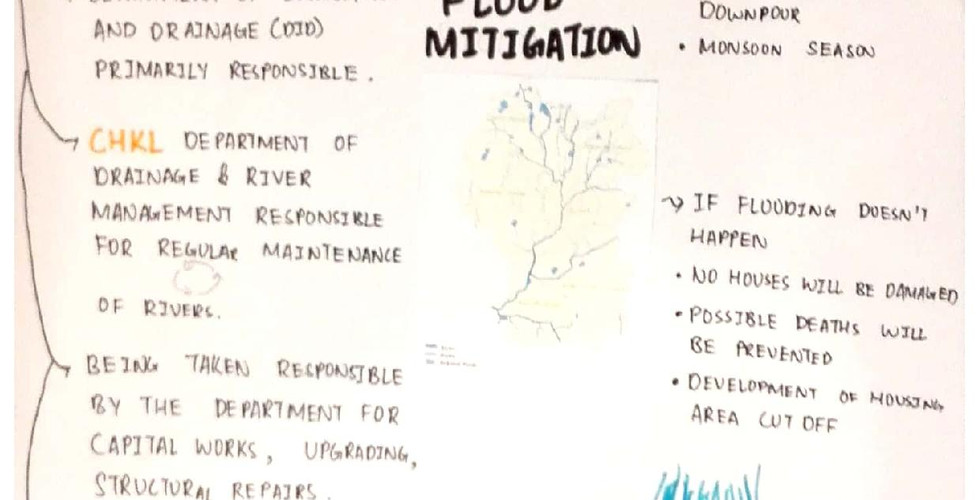 AND DRAINAGE (DID)
PRIMARILY RESPONSIBLE.
CHKL DEPARTMENT OF
DRAINAGE & RIVER
MANAGEMENT RESPONSIBLE
FOR REGULAR MAINTENANCE
OF RIVERS.
BEING TAKEN RESPONSIBLE
BY THE DEPARTMENT FOR
CAPITAL WORKS, UPGRADING,
STRUCTURAL REPAIRS.
FLOOD
MITIGATION
DOWNPOUR
• MONSOON SEASON
IF FLOODING DOESN'T
HAPPEN
• NO HOUSES WILL BE DAMAGED
• POSSIBLE DEATHS WILL
BE PREVENTED
• DEVELOPMENT OF HOUSING
AREA CUT OFF